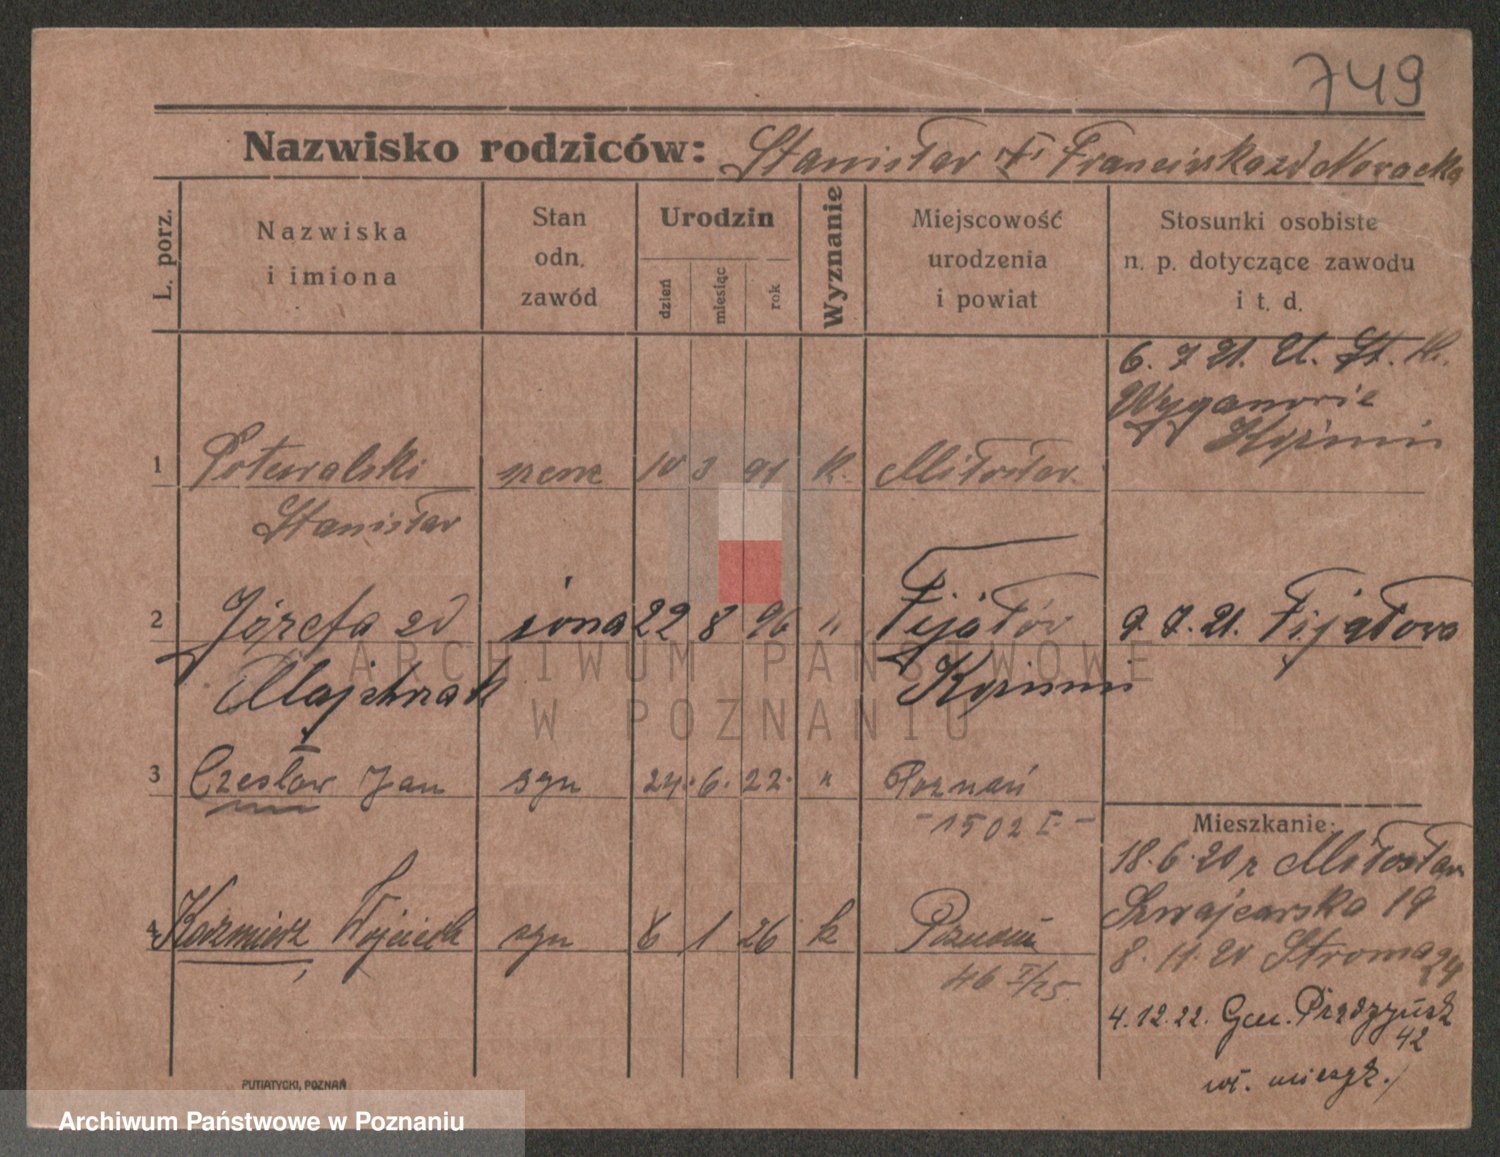 749
Nazwisko rodziców: Stanisław i Franciszka zd Nowacka
L. porz.
Nazwiska
i imiona
Stan
odn.
zawód
Urodzin
dzień
miesiąc
rok
Wyznanie
Miejscowość
urodzenia
i powiat
Stosunki osobiste
n. p. dotyczące zawodu
i t. d.
6. 7 21. U. St. K.
Wyganowie
Koźmin
1 Poturalski 10 3 91 k. Miłosław
Stanisław
2 Józefa zd żona 22 8 96 " Fijałów 9. 7. 21. Fijałowa
Majchrzak Koźmin
3 Czesław Jan syn 24. 6. 22. " Poznań
- 1502 I -
Mieszkanie:
18. 6. 20 z Miłosław
Szwajcarska 19
4 Kazimierz Wojciech syn 8 1 26 k Poznań
8. 11. 20 Stroma 24
46 I/25.
4. 12. 22. Gen. Prądzyńsk
42
wł. mieszk.
PUTIATYCKI, POZNAŃ
ARCHIWUM PAŃSTWOWE
W POZNANIU
Archiwum Państwowe w Poznaniu